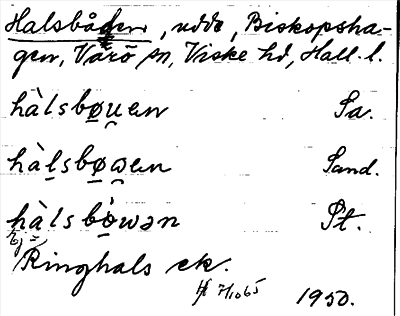 Halsbåden, udde, Biskopsha-
gen, Värö sn, Viske hd, Hall. l.
hàlsbøu̯ən Sa.
hàlsbøωən Sand.
hàlsbòwən St.
Ringhals ek.
7/10 65 1950.